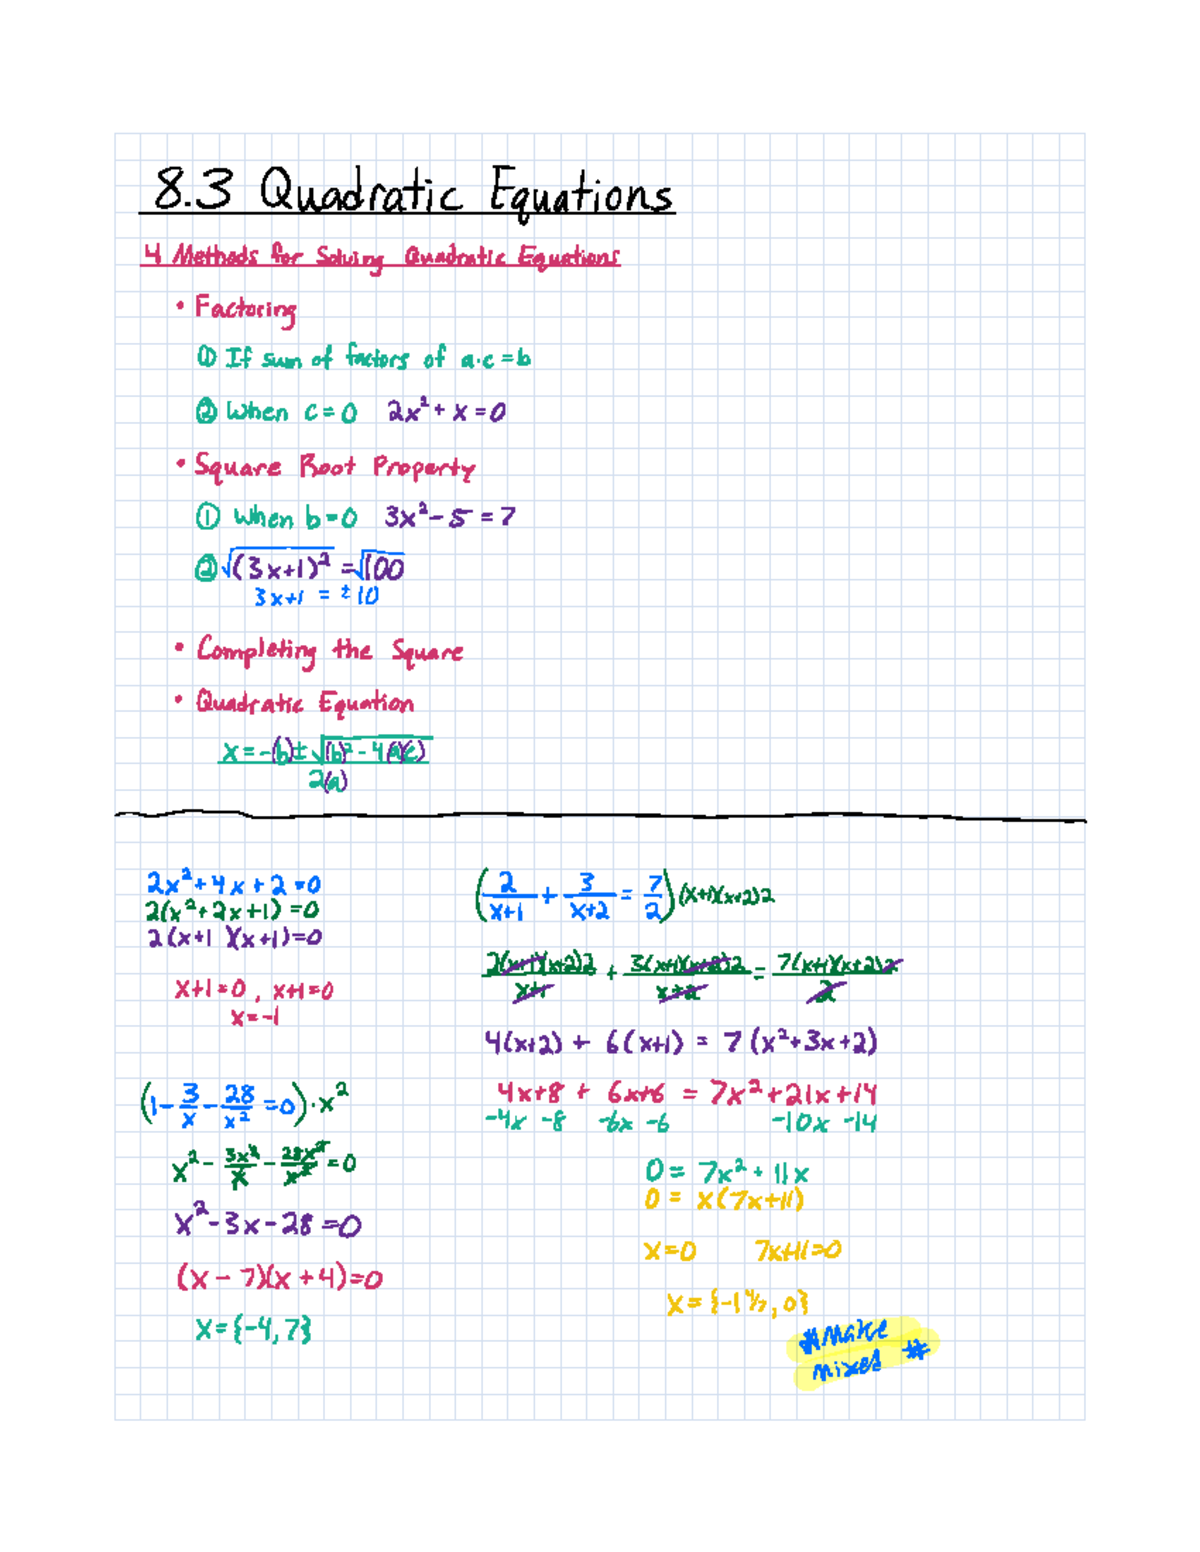 8.3 Quadratic Equations
4 Methods for Solving Quadratic Equations
• Factoring
① If sum of factors of a·c = b
② When c = 0 2x² + x = 0
• Square Root Property
① When b = 0 3x² - 5 = 7
② √(3x+1)² = √100
3x+1 = ±10
• Completing the Square
• Quadratic Equation
x = -(b) ± √(b)² - 4(a)(c)
2(a)
2x² + 4x + 2 = 0
2(x² + 2x + 1) = 0
2(x+1)(x+1) = 0
x+1 = 0, x+1 = 0
x = -1
(1 - 3/x - 28/x² = 0) · x²
x² - 3x²/x - 28x²/x² = 0
x² - 3x - 28 = 0
(x - 7)(x + 4) = 0
x = {-4, 7}
(2/x+1 + 3/x+2 = 7/2) (x+1)(x+2)2
2(x+1)(x+2)2/x+1 + 3(x+1)(x+2)2/x+2 = 7(x+1)(x+2)2/2
4(x+2) + 6(x+1) = 7(x² + 3x + 2)
4x+8 + 6x+6 = 7x² + 21x + 14
-4x -8 -6x -6 -10x -14
0 = 7x² + 11x
0 = x(7x+11)
x = 0 7x+11 = 0
x = {-1 4/7, 0}
*Make
mixed #